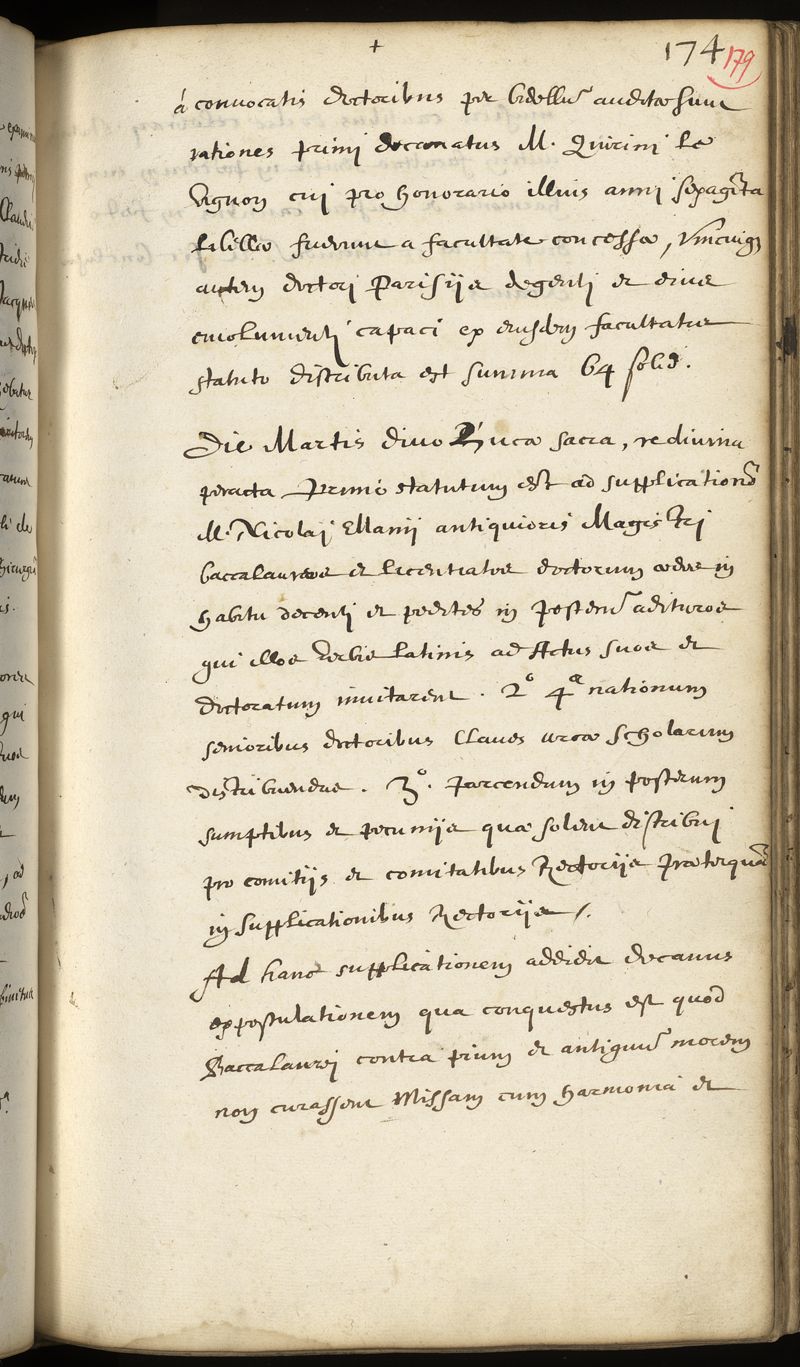 +
174
179
á convocatis doctoribus per bidellū auditæ sunt
rationes primi decanatus M. Quirini le
Vignon cui pro honorario illius anni sexagīta
libellæ fuerunt a facultate concessæ, Vnicuiq3
autem doctori Parisijs degenti et eius
emolumenti capaci ex eiusdem facultatis
statuto distributa est summa 64 solid.
Die Martis divo Lucæ sacra, re divina
peracta Primò statutum est ad supplicationē
M. Nicolaj Ellanij antiquioris Magistri
baccalaureos et licentiatos doctorum ædes in
habitu decenti et pedites in posterū adituros
qui illos verbis latinis ad Actus suos et
doctoratum invitarent. 2º 4ª nationum
senioribus doctoribus Claves arcæ scholarum
distribuendas. 3º. parcendum in posterum
sumptibus et pecunijs quæ solent distribui
pro comitijs et comitatibus Rectorijs præterquā
in supplicationibus Rectorijs /.
Ad hanc supplicationem addidit decanus
expostulationem qua conquestus est quod
Baccalaurej contra pium et antiquū morem
non curassent Missam cum harmonia et